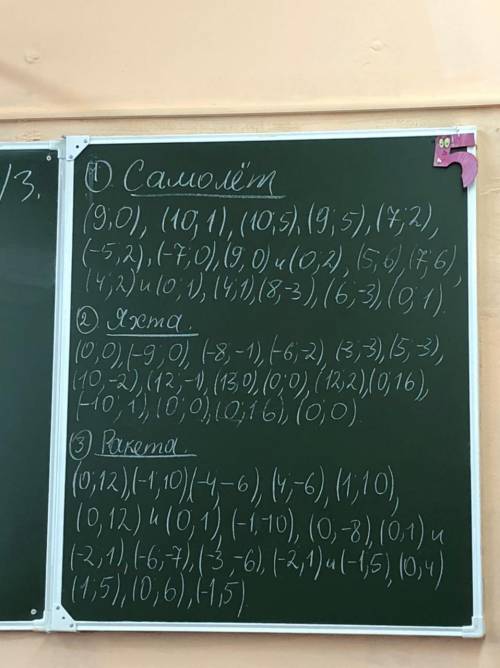 /3.
5
① Самолёт
(9;0), (10,1), (10;5), (9;5), (7;2),
(-5,2), (-7;0), (9,0) и (0,2), (5,6), (7;6),
(4;2) и (0;1), (4,1), (8,-3), (6;-3), (0,1).
② Яхта.
(0,0), (-9;0), (-8,-1), (-6,-2), (3;-3), (5,-3),
(10,-2), (12,-1), (13,0), (0;0), (12;2), (0,16),
(-10;1), (0;0), (0;16), (0;0).
③ Ракета.
(0,12), (-1,10) (-4,-6), (4,-6), (1,10),
(0,12) и (0,1) (-1,-10), (0,-8), (0,1) и
(-2,1), (-6,-7), (-3,-6), (-2,1) и (-1,5), (0,4)
(1,5), (0;6), (-1,5).